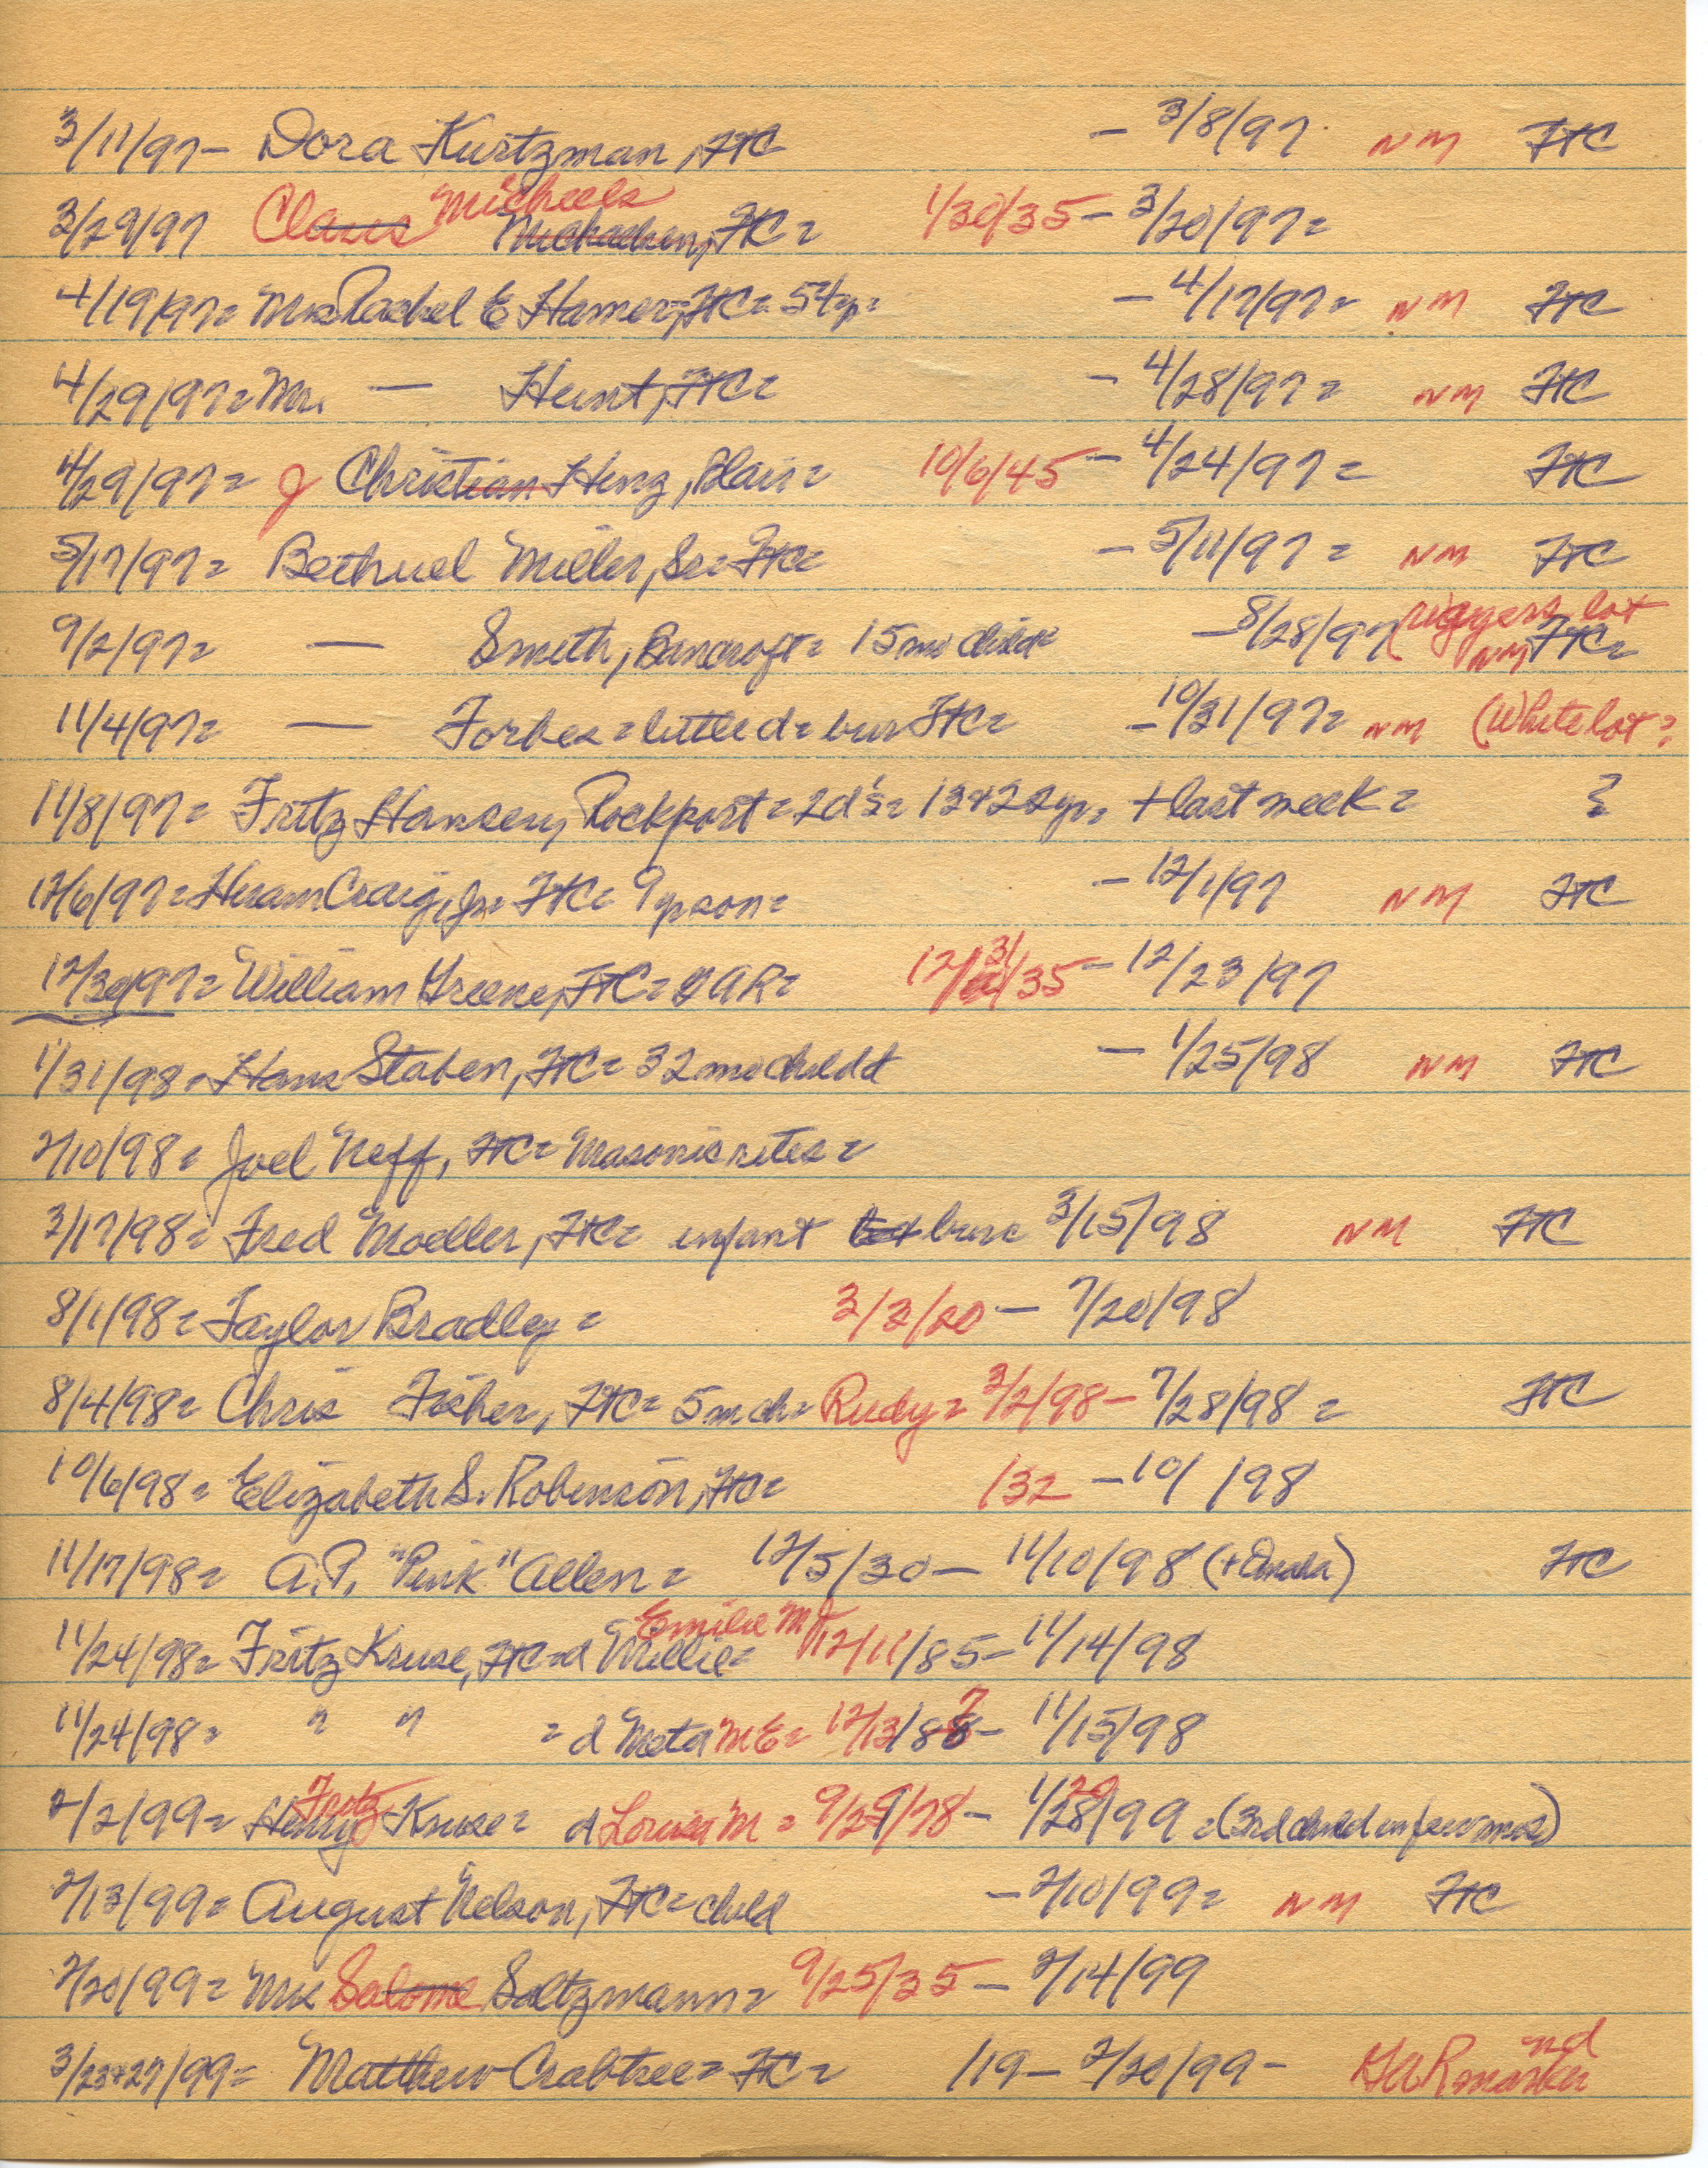 3/11/97 – Dora Kurtzman, FtC – 3/8/97 NM FtC
3/29/97 Claus Micheels Michaelsen, FtC = 1/30/35 – 3/20/97 =
4/19/97 = Mrs Rachel E Hamer, FtC = 54 yr = – 4/17/97 = NM FtC
4/29/97 = Mr. — Hunt, FtC = – 4/28/97 = NM FtC
4/29/97 = J Christian Hinz, Blair = 10/6/45 – 4/24/97 = FtC
5/17/97 = Bethuel Miller, Sr = FtC = – 5/11/97 = NM FtC
9/2/97 = — Smith, Bancroft = 15 mo child = – 8/28/97 (Riggers lot NM FtC =
11/4/97 = — Forbes = little d = bur FtC = – 10/31/97 = NM (White lot ?
11/8/97 = Fritz Hansen, Rockport = 2 d's = 13 + 22 yr = + last week = ?
12/6/97 = Hiram Craig, Jr = FtC = 9 yr son = – 12/1/97 NM FtC
12/30/97 = William Greene, FtC = GAR = 12/31/35 – 12/23/97
1/31/98 = Hans Staben, FtC = 32 mo child d – 1/25/98 NM FtC
2/10/98 = Joel Neff, FtC = Masonic rites =
3/17/98 = Fred Moeller, FtC = infant bur = 3/15/98 NM FtC
8/1/98 = Taylor Bradley = 3/3/20 – 7/20/98
8/4/98 = Chris Fisher, FtC = 5 m ch = Rudy = 3/2/98 – 7/28/98 = FtC
10/6/98 = Elizabeth S. Robinson, FtC = /32 – 10/ /98
11/17/98 = A.P. "Pink" Allen = 12/5/30 – 11/10/98 (+ Omaha) FtC
11/24/98 = Fritz Kruse, FtC = d Millie = Emilie M 12/11/85 – 11/14/98
11/24/98 = " " = d Meta M E = 12/13/88 7 – 11/15/98
2/2/99 = Henry Fritz Kruse = d Louisa M = 9/29/78 – 1/28 29/99 = (3rd child in few mos)
2/13/99 = August Nelson, FtC = child – 2/10/99 = NM FtC
2/20/99 = Mrs Salome Saltzmann = 9/25/35 – 2/14/99
3/23+27/99 = Matthew Crabtree = FtC = /19 – 2/20/99 – GAR marker nd